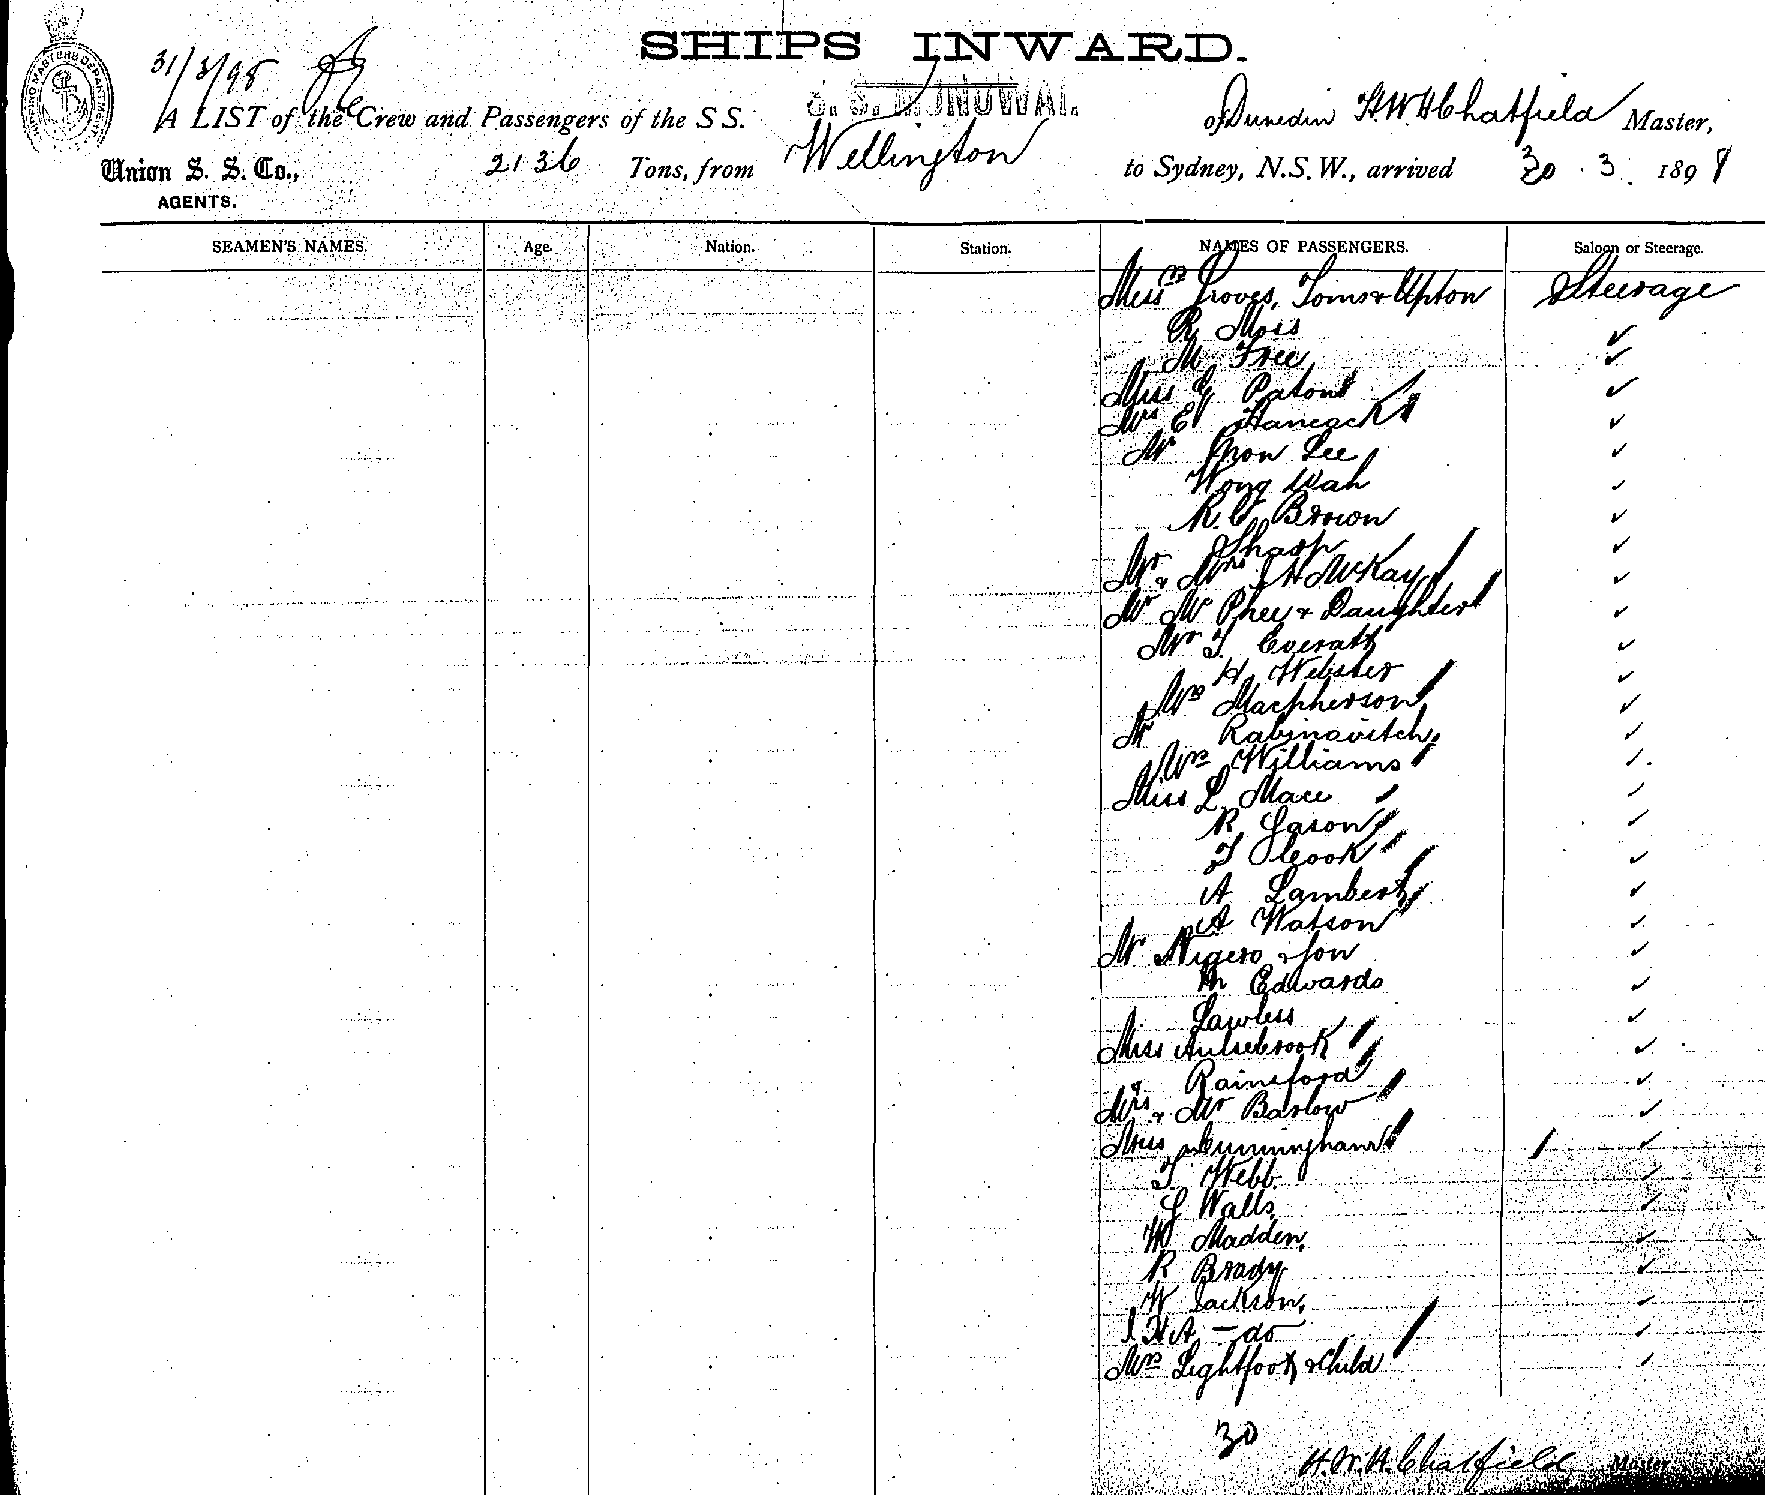 SHIPS INWARD.
31/3/98
S. S. MONOWAI.
A LIST of the Crew and Passengers of the S S. of Dunedin H.W.H Chatfield Master,
Union S. S. Co., 2136 Tons, from Wellington to Sydney, N.S.W., arrived 30 . 3 . 1898
AGENTS.
SEAMEN'S NAMES. Age. Nation. Station. NAMES OF PASSENGERS. Saloon or Steerage.
Messrs Groves, Toms & Upton Steerage
R Mois ✓
M Free ✓
Miss G Paton ✓
Mrs E Hancock ✓
Mr Gron Lee ✓
Wong Wah ✓
R. C. Brown ✓
Sharp ✓
Mr & Mrs J H McKay ✓
Mr Mc Phee & Daughter ✓
Mr T. Everatt ✓
H Webster ✓
Mrs Macpherson ✓
Mr Rabinavitch ✓
Mrs Williams ✓
Miss L Mace ✓
R Gason ✓
T Cook ✓
A Lambert ✓
A Watson ✓
Mr Nigero & Son ✓
M Edwards ✓
Lawless ✓
Miss Aulsebrook ✓
Rainsford ✓
Mrs & Mr Barlow ✓
Miss Cunningham ✓
T. Webb ✓
G Walls ✓
W Madden ✓
R Brady ✓
W Jackson ✓
J. H A - do ✓
Mrs Lightfoot & Child ✓
30
H.W.H. Chatfield Master